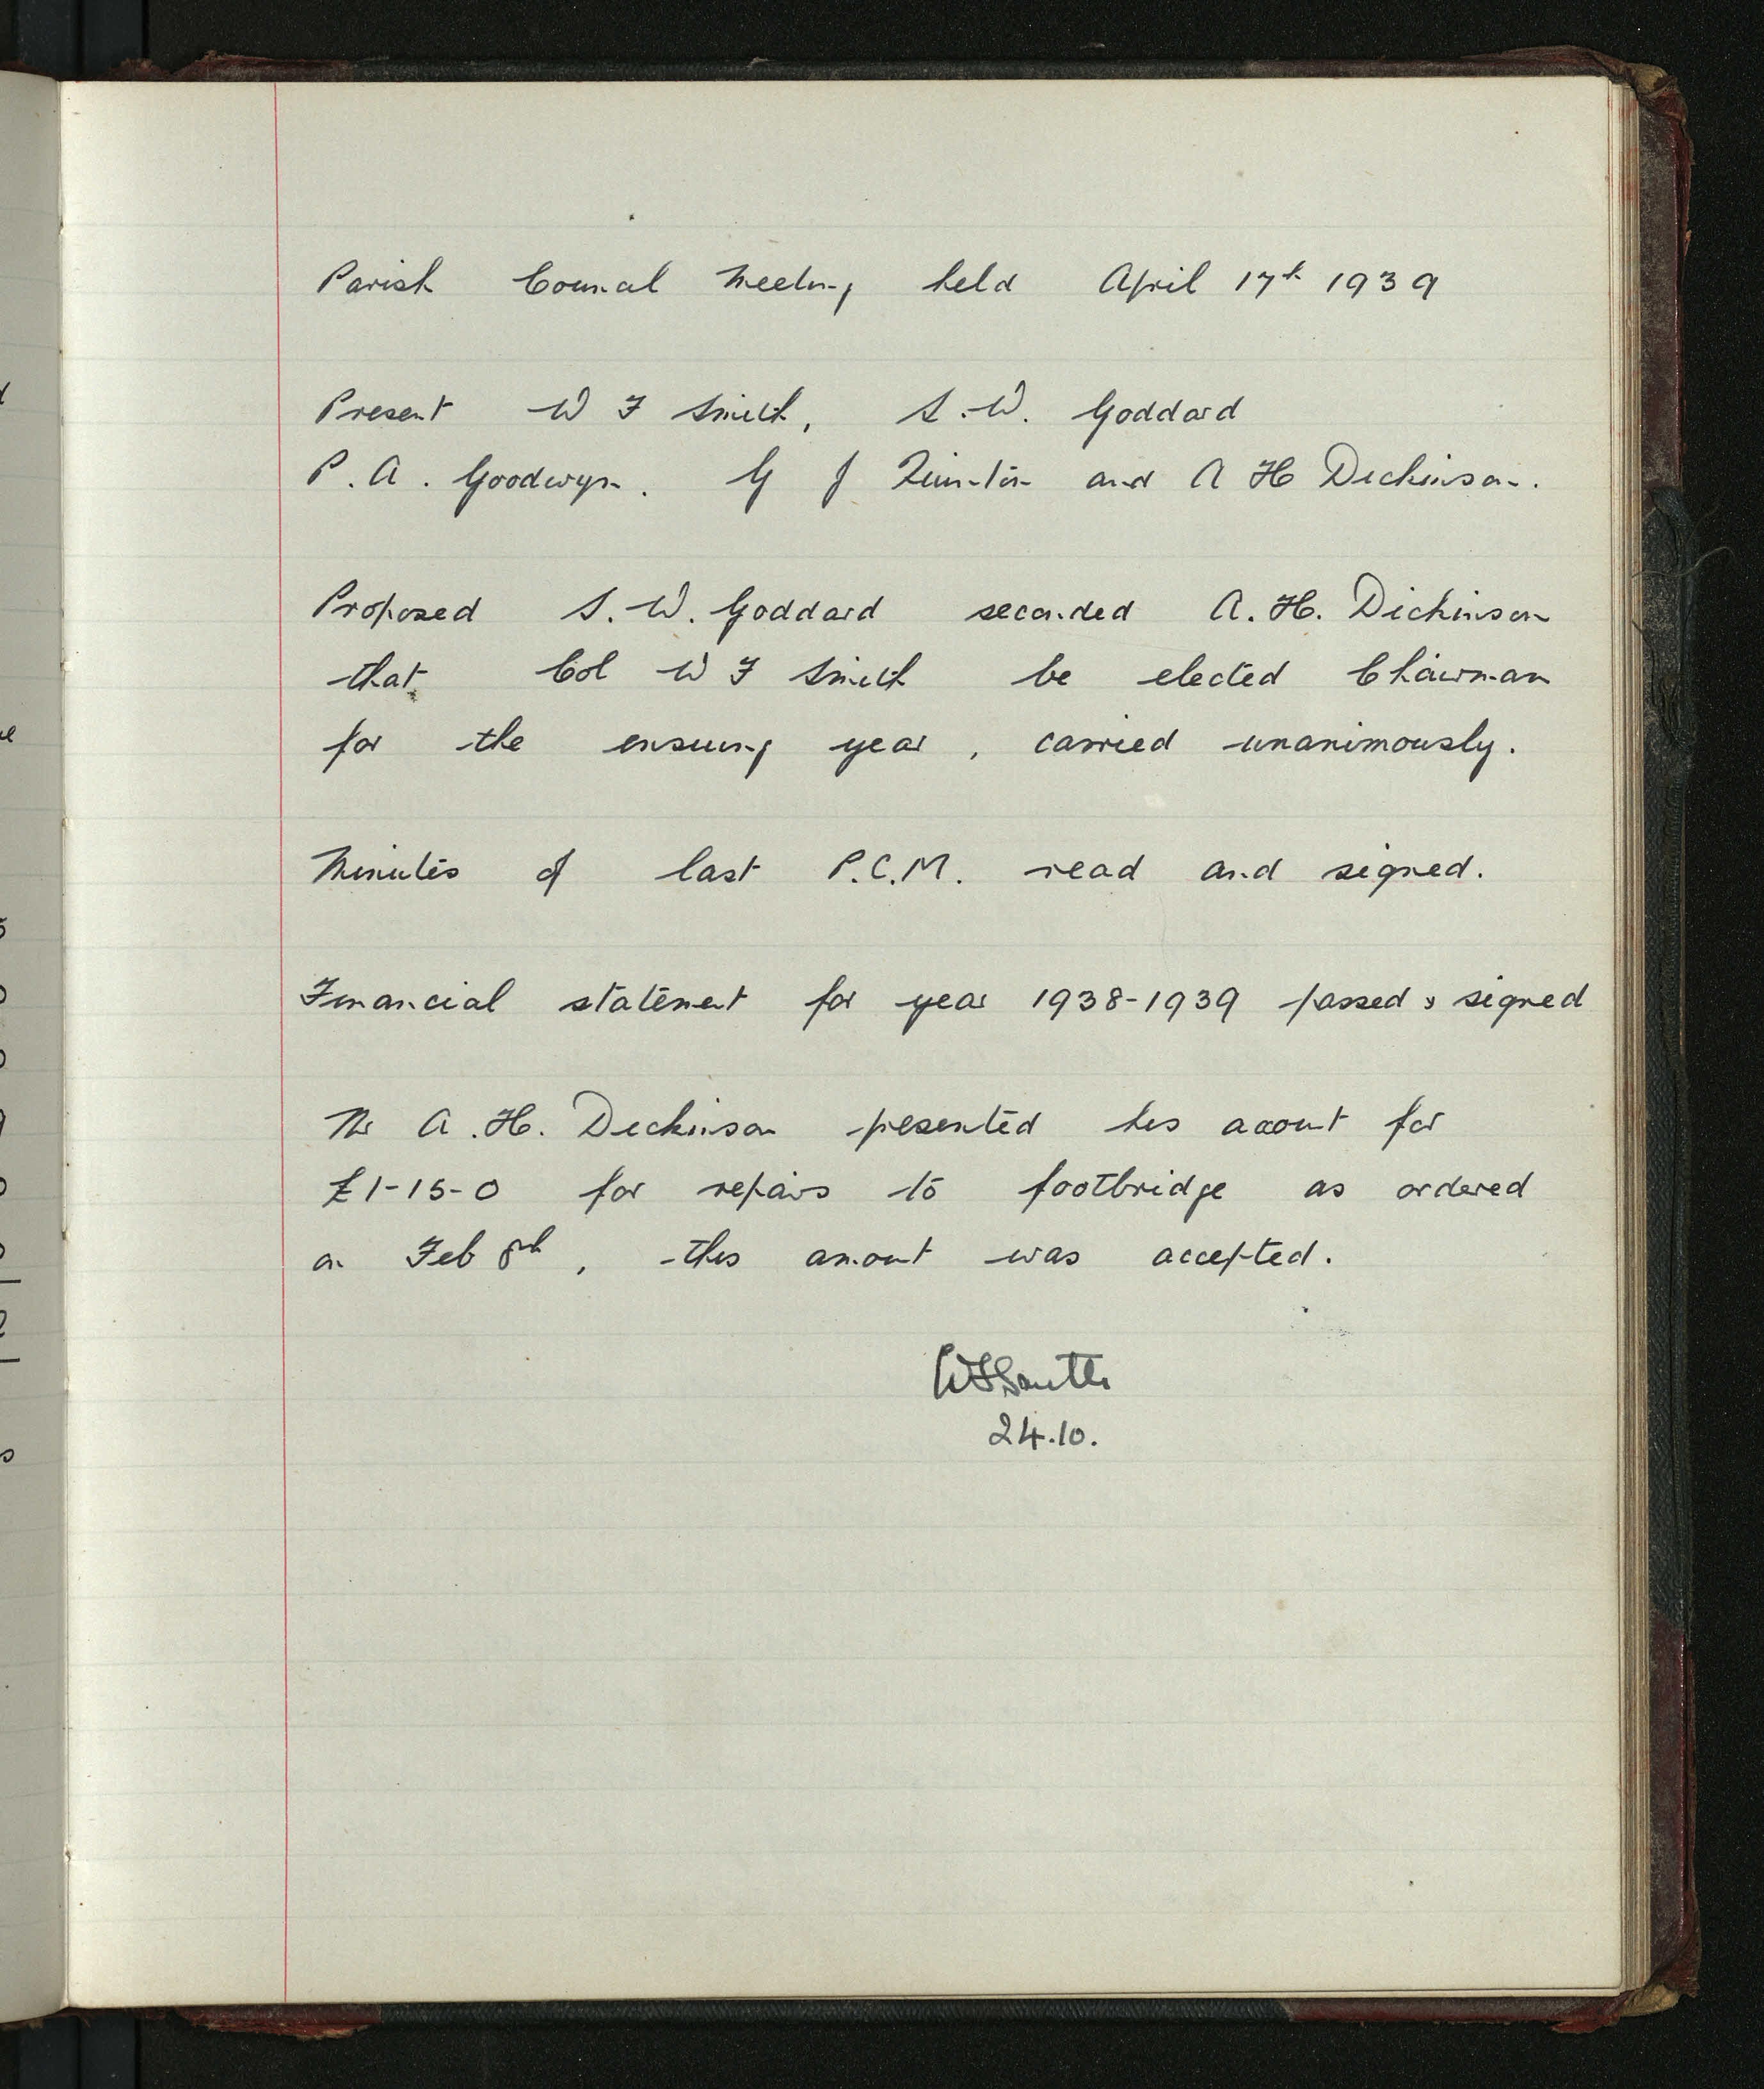 Parish Council Meeting held April 17th 1939
Present W F Smith, S.W. Goddard
P.A. Goodwyn. G J and A H Dickinson.
Proposed S.W. Goddard seconded A.H. Dickinson
that Col W F Smith be elected Chairman
for the ensuing year, carried unanimously.
Minutes of last P.C.M. read and signed.
Financial statement for year 1938-1939 passed & signed
Mr A.H. Dickinson presented his account for
£1-15-0 for repairs to footbridge as ordered
on Feb 8th, this amount was accepted.
WFSmith
24.10.